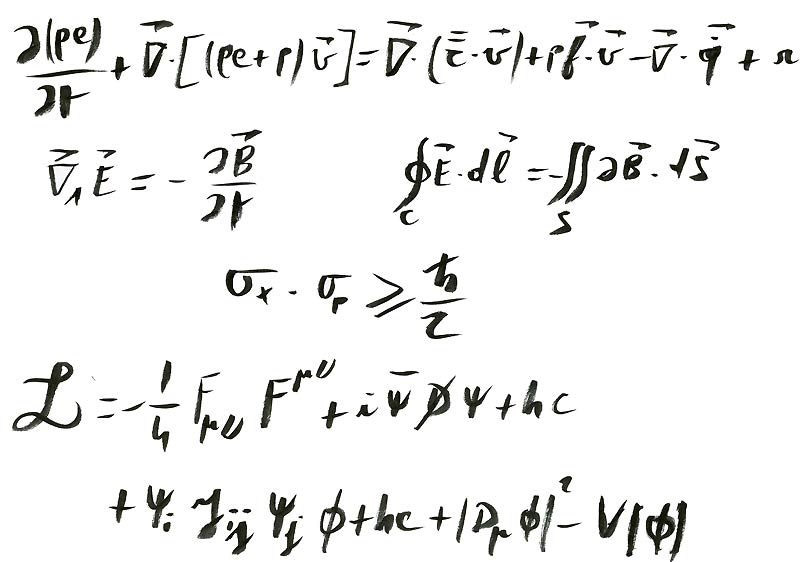 ∂(ρe)/∂t + ∇⃗·[(ρe+p)v⃗] = ∇⃗·(τ̿·v⃗) + ρf⃗·v⃗ − ∇⃗·q̇⃗ + r
∇⃗∧E⃗ = − ∂B⃗/∂t ∮_C E⃗·dl⃗ = −∬_S ∂B⃗·dS⃗
σₓ·σₚ ⩾ ħ/2
ℒ = −1/4 F_μν F^μν + iψ̄D̸ψ + hc
+ ψᵢ yᵢⱼ ψⱼ ϕ + hc + |D_μ ϕ|² − V(ϕ)